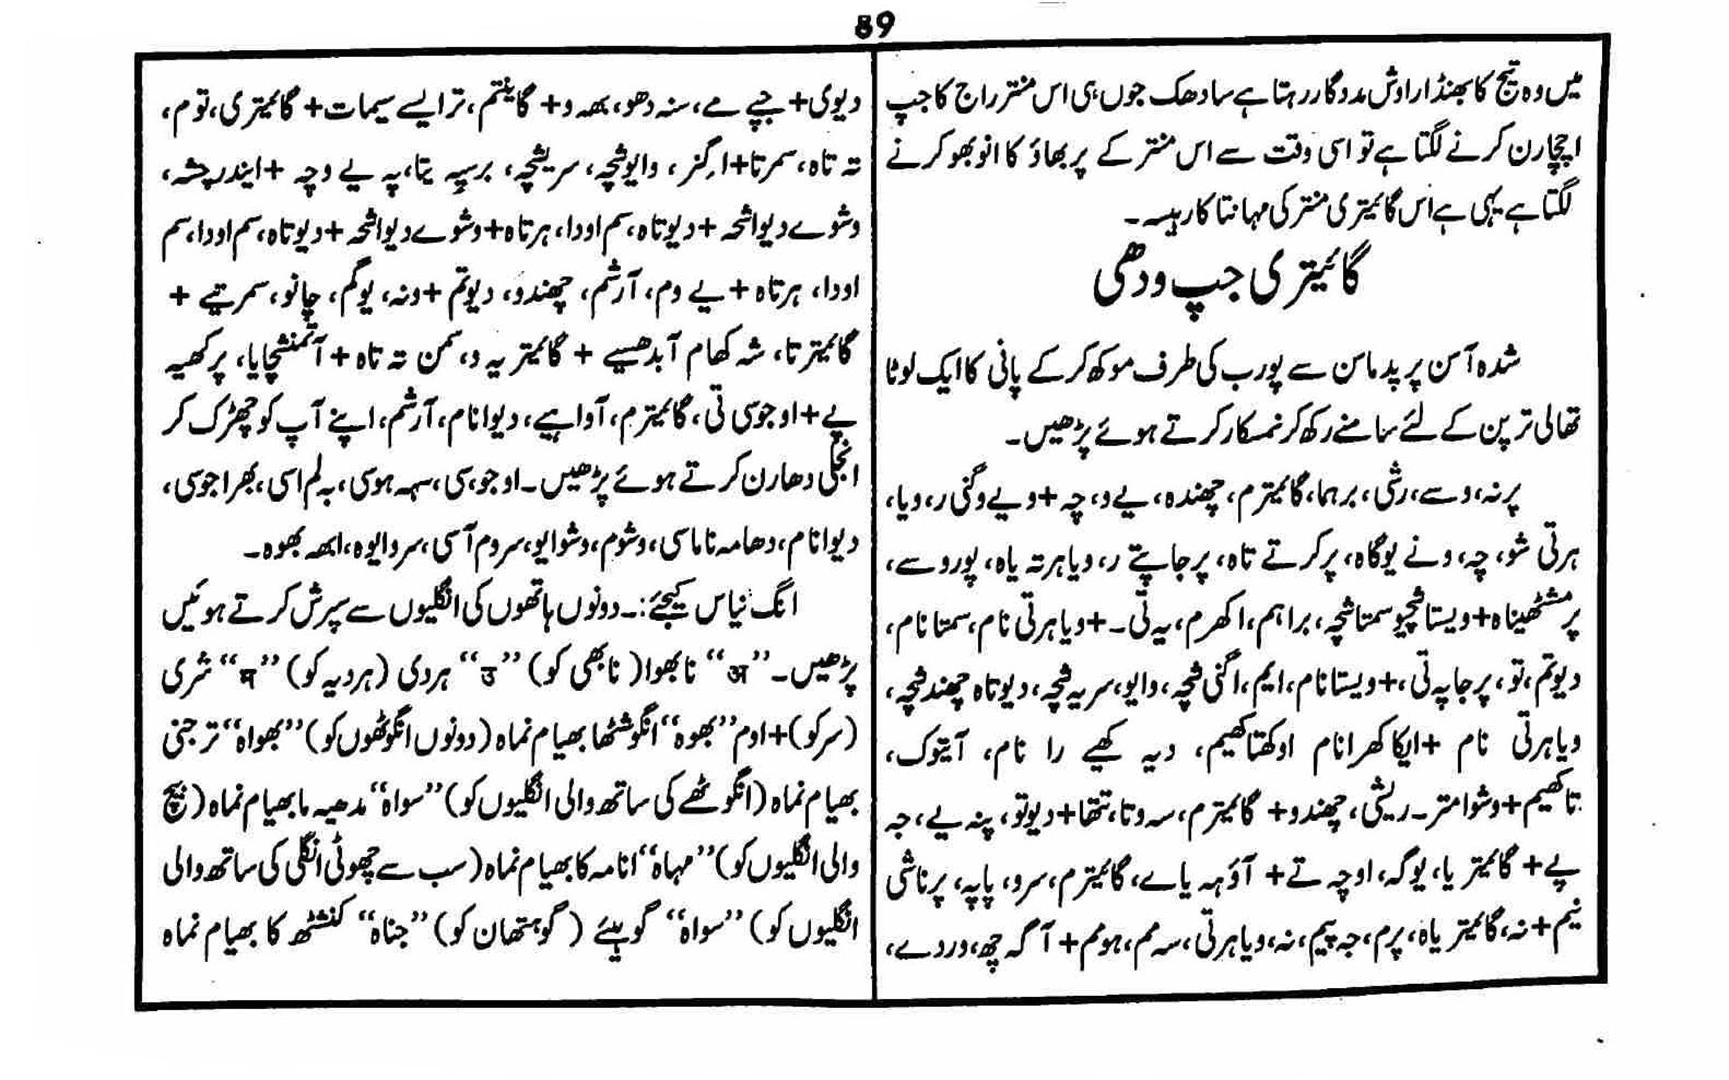 89
میں وہ تیج کا بھنڈار اوش مددگار رہتا ہے سادھک جوں ہی اس منتر راج کا جپ
اچارن کرنے لگتا ہے تو اسی وقت سے اس منتر کے پربھاؤ کا انوبھو کرنے
لگتا ہے یہی ہے اس گائیتری منتر کی مہانتا کا رہسیہ۔
گائیتری جپ ودھی
شدھ آسن پر پدماسن سے پورب کی طرف موکھ کر کے پانی کا ایک لوٹا
تھالی ترپن کے لئے سامنے رکھ کر نمسکار کرتے ہوئے پڑھیں۔
پرنہ، وسے، رشی، برہما، گائیترم، چھندہ، یے و، چہ + ویے وگنی ر، ویا،
ہرتی شو، چہ، ونے یوگاہ، پرکرتے تاہ، پرجاپتے ر، ویاہرتہ یاہ، پوروسے،
پرمشٹھیناہ + ویستاشچیو سمتاشچہ، براہم، اکھرم، یہ تی۔ + ویاہرتی نام، سمتا نام،
دیوتم، تو، پرجاپہ تی، + ویستا نام، ایم، اگنی شچہ، وایو، سریہ شچہ، دیوتاہ چھندشچہ،
ویاہرتی نام + ایکا کھرانام اوکھتا کھیم، دیہ کھیے را نام، آیتوک،
تاکھیم + وشوامتر۔ ریشی، چھندو + گائیترم، سہ وتا، تتھا + دیوتو، پنہ یے، جہ
پے + گائیتر یا، یوگہ، اوچہ تے + آؤہہ یاے، گائیترم، سرو، پاپہ، پرناشی
نیم + نہ، گائیتر یاہ، پرم، جہ پیم، نہ، ویاہرتی، سہ مم، ہوتم + آگہ چھ، وردے،
دیوی + جپے مے، سنہ دھو، بھہ و + گاینتم، ترایے سیمات + گائیتری، توم،
تہ تاہ، سمرتا + اگنر، وایوشچہ، سریشچہ، برسپہ یتا، پہ یے وچہ + ایندرچشہ،
وشوے دیواشحہ + دیوتاہ، سم اودا، ہرتاہ + وشوے دیواشحہ + دیوتاہ، سم اودا، سم
اودا، ہرتاہ + یے وم، آرشم، چھندو، دیوتم + ونہ، یوگم، چانو، سمرتیے +
گائیترتا، شہ کھام آبدھیسے + گائیتر یہ و، سمن تہ تاہ + آتمنشچایا، پرکھیہ
پے + اوجوسی تی، گائیترم، آواہیے، دیوانام، آرشم، اپنے آپ کو چھڑک کر
انجلی دھارن کرتے ہوئے پڑھیں۔ اوجو، سی، سہہ ہوسی، بہ لم اسی، بھراجوسی،
دیوانام، دھامہ ناماسی، وشوم، وشوایو، سروم آسی، سروایوہ، ابھہ بھوہ۔
انگ نیاس کیجئے:۔ دونوں ہاتھوں کی انگلیوں سے سپرش کرتے ہوئیں
پڑھیں۔ ”अ“ نابھوا (نابھی کو) ”उ“ ہردی (ہردیہ کو) ”म“ شری
(سر کو) + اوم ”بھوہ“ انگوشٹھا بھیام نماہ (دونوں انگوٹھوں کو) ”بھواہ“ ترجنی
بھیام نماہ (انگوٹھے کی ساتھ والی انگلیوں کو) ”سواہ“ مدھیہ ما بھیام نماہ (بیچ
والی انگلیوں کو) ”مہاہ“ انامہ کا بھیام نماہ (سب سے چھوٹی انگلی کی ساتھ والی
انگلیوں کو) ”سواہ“ گوہیئے (گوہتھان کو) ”جناہ“ کنشٹھ کا بھیام نماہ